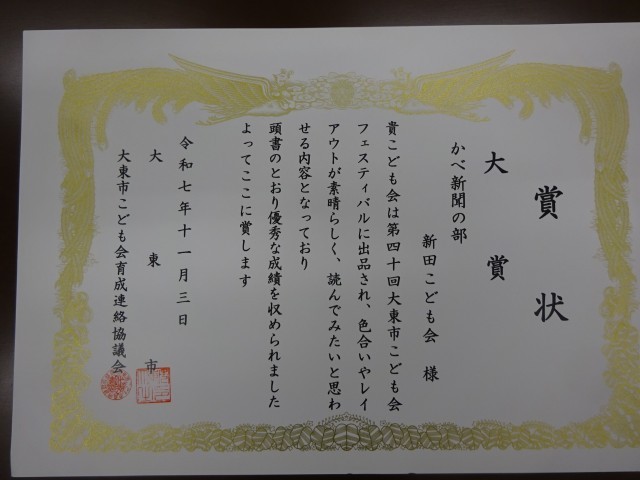 賞状
大賞
かべ新聞の部
新田こども会 様
貴こども会は第四十回大東市こども会
フェスティバルに出品され、色合いやレイ
アウトが素晴らしく、読んでみたいと思わ
せる内容となっており
頭書のとおり優秀な成績を収められました
よってここに賞します
令和七年十一月三日
大東市
大東市こども会育成連絡協議会